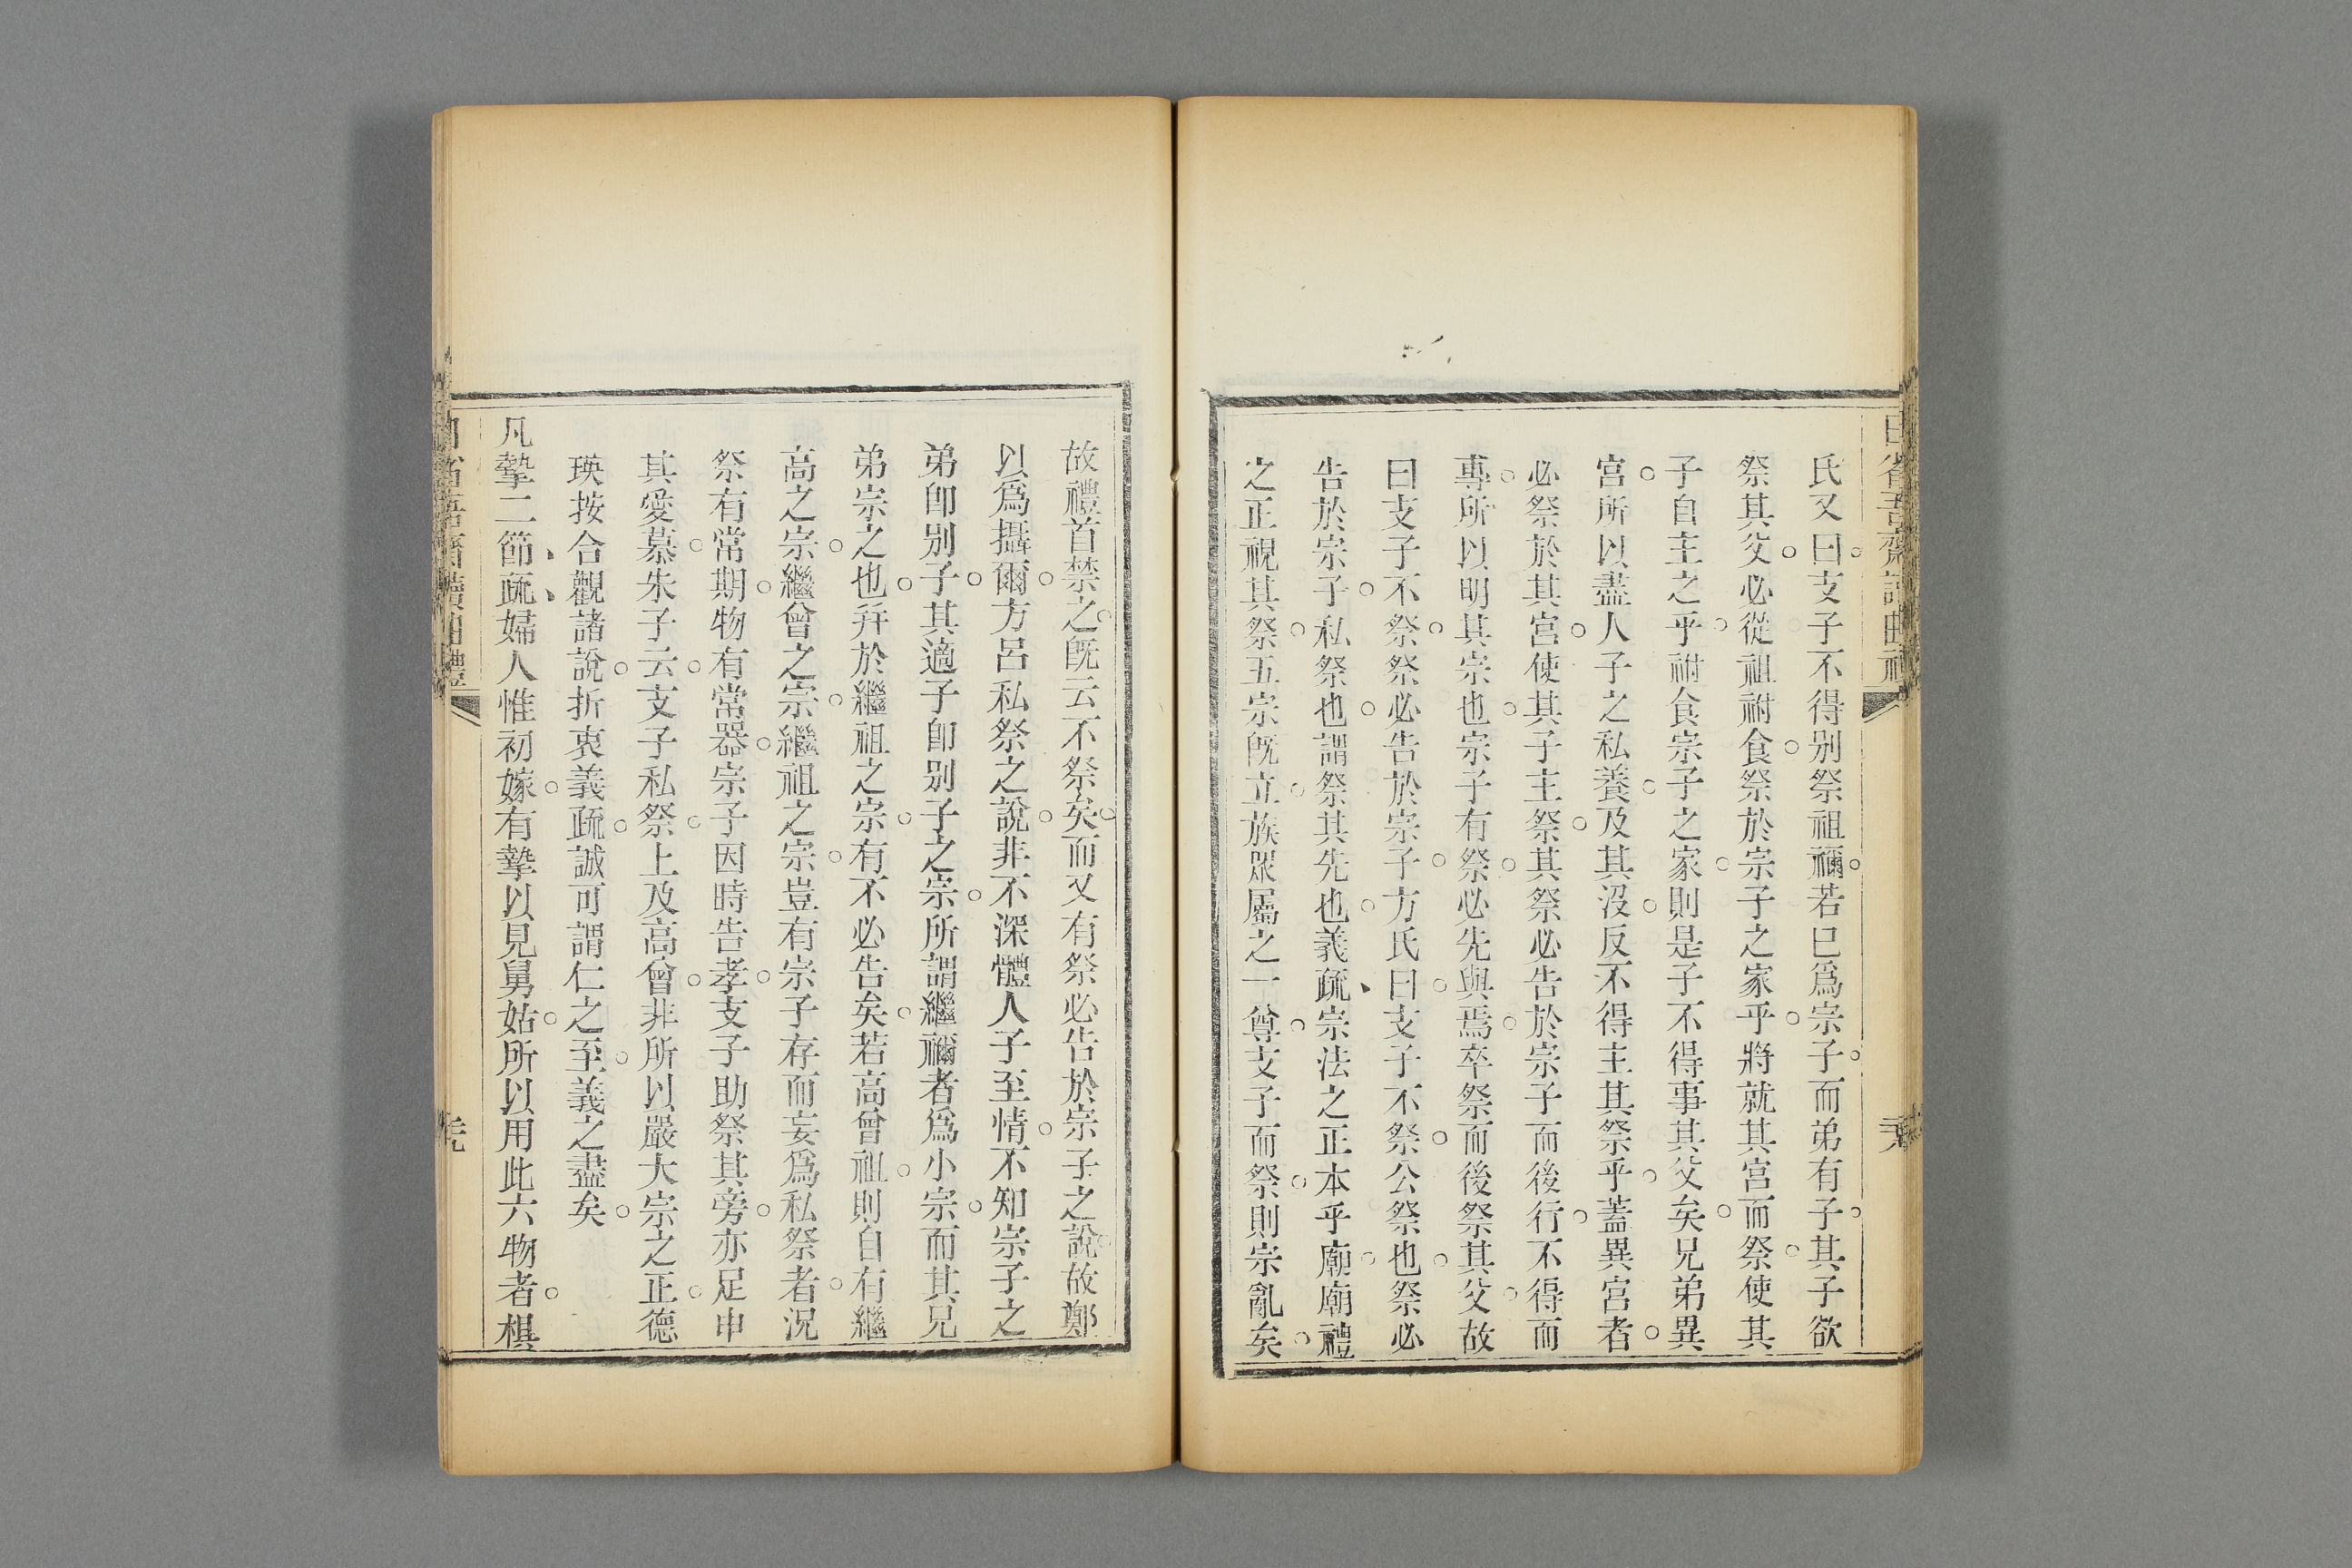 氏又曰支子不得別祭祖禰若已爲宗子而弟有子其子欲
祭其父必從祖祔食祭於宗子之家乎將就其宮而祭使其
子自主之乎祔食宗子之家則是子不得事其父矣兄弟異
宮所以盡人子之私養及其沒反不得主其祭乎蓋異宮者
必祭於其宮使其子主祭其祭必告於宗子而後行不得而
專所以明其宗也宗子有祭必先與焉卒祭而後祭其父故
曰支子不祭祭必告於宗子方氏曰支子不祭公祭也祭必
告於宗子私祭也謂祭其先也義疏宗法之正本乎廟廟禮
之正視其祭五宗旣立族眾屬之一尊支子而祭則宗亂矣
故禮首禁之旣云不祭矣而又有祭必告於宗子之說故鄭
以爲攝爾方呂私祭之說非不深體人子至情不知宗子之
弟卽別子其適子卽別子之宗所謂繼禰者爲小宗而其兄
弟宗之也幷於繼祖之宗有不必告矣若高曾祖則自有繼
高之宗繼曾之宗繼祖之宗豈有宗子存而妄爲私祭者況
祭有常期物有常器宗子因時告孝支子助祭其旁亦足申
其愛慕朱子云支子私祭上及高曾非所以嚴大宗之正德
瑛按合觀諸說折衷義疏誠可謂仁之至義之盡矣
凡摯二節疏婦人惟初嫁有摯以見舅姑所以用此六物者棋